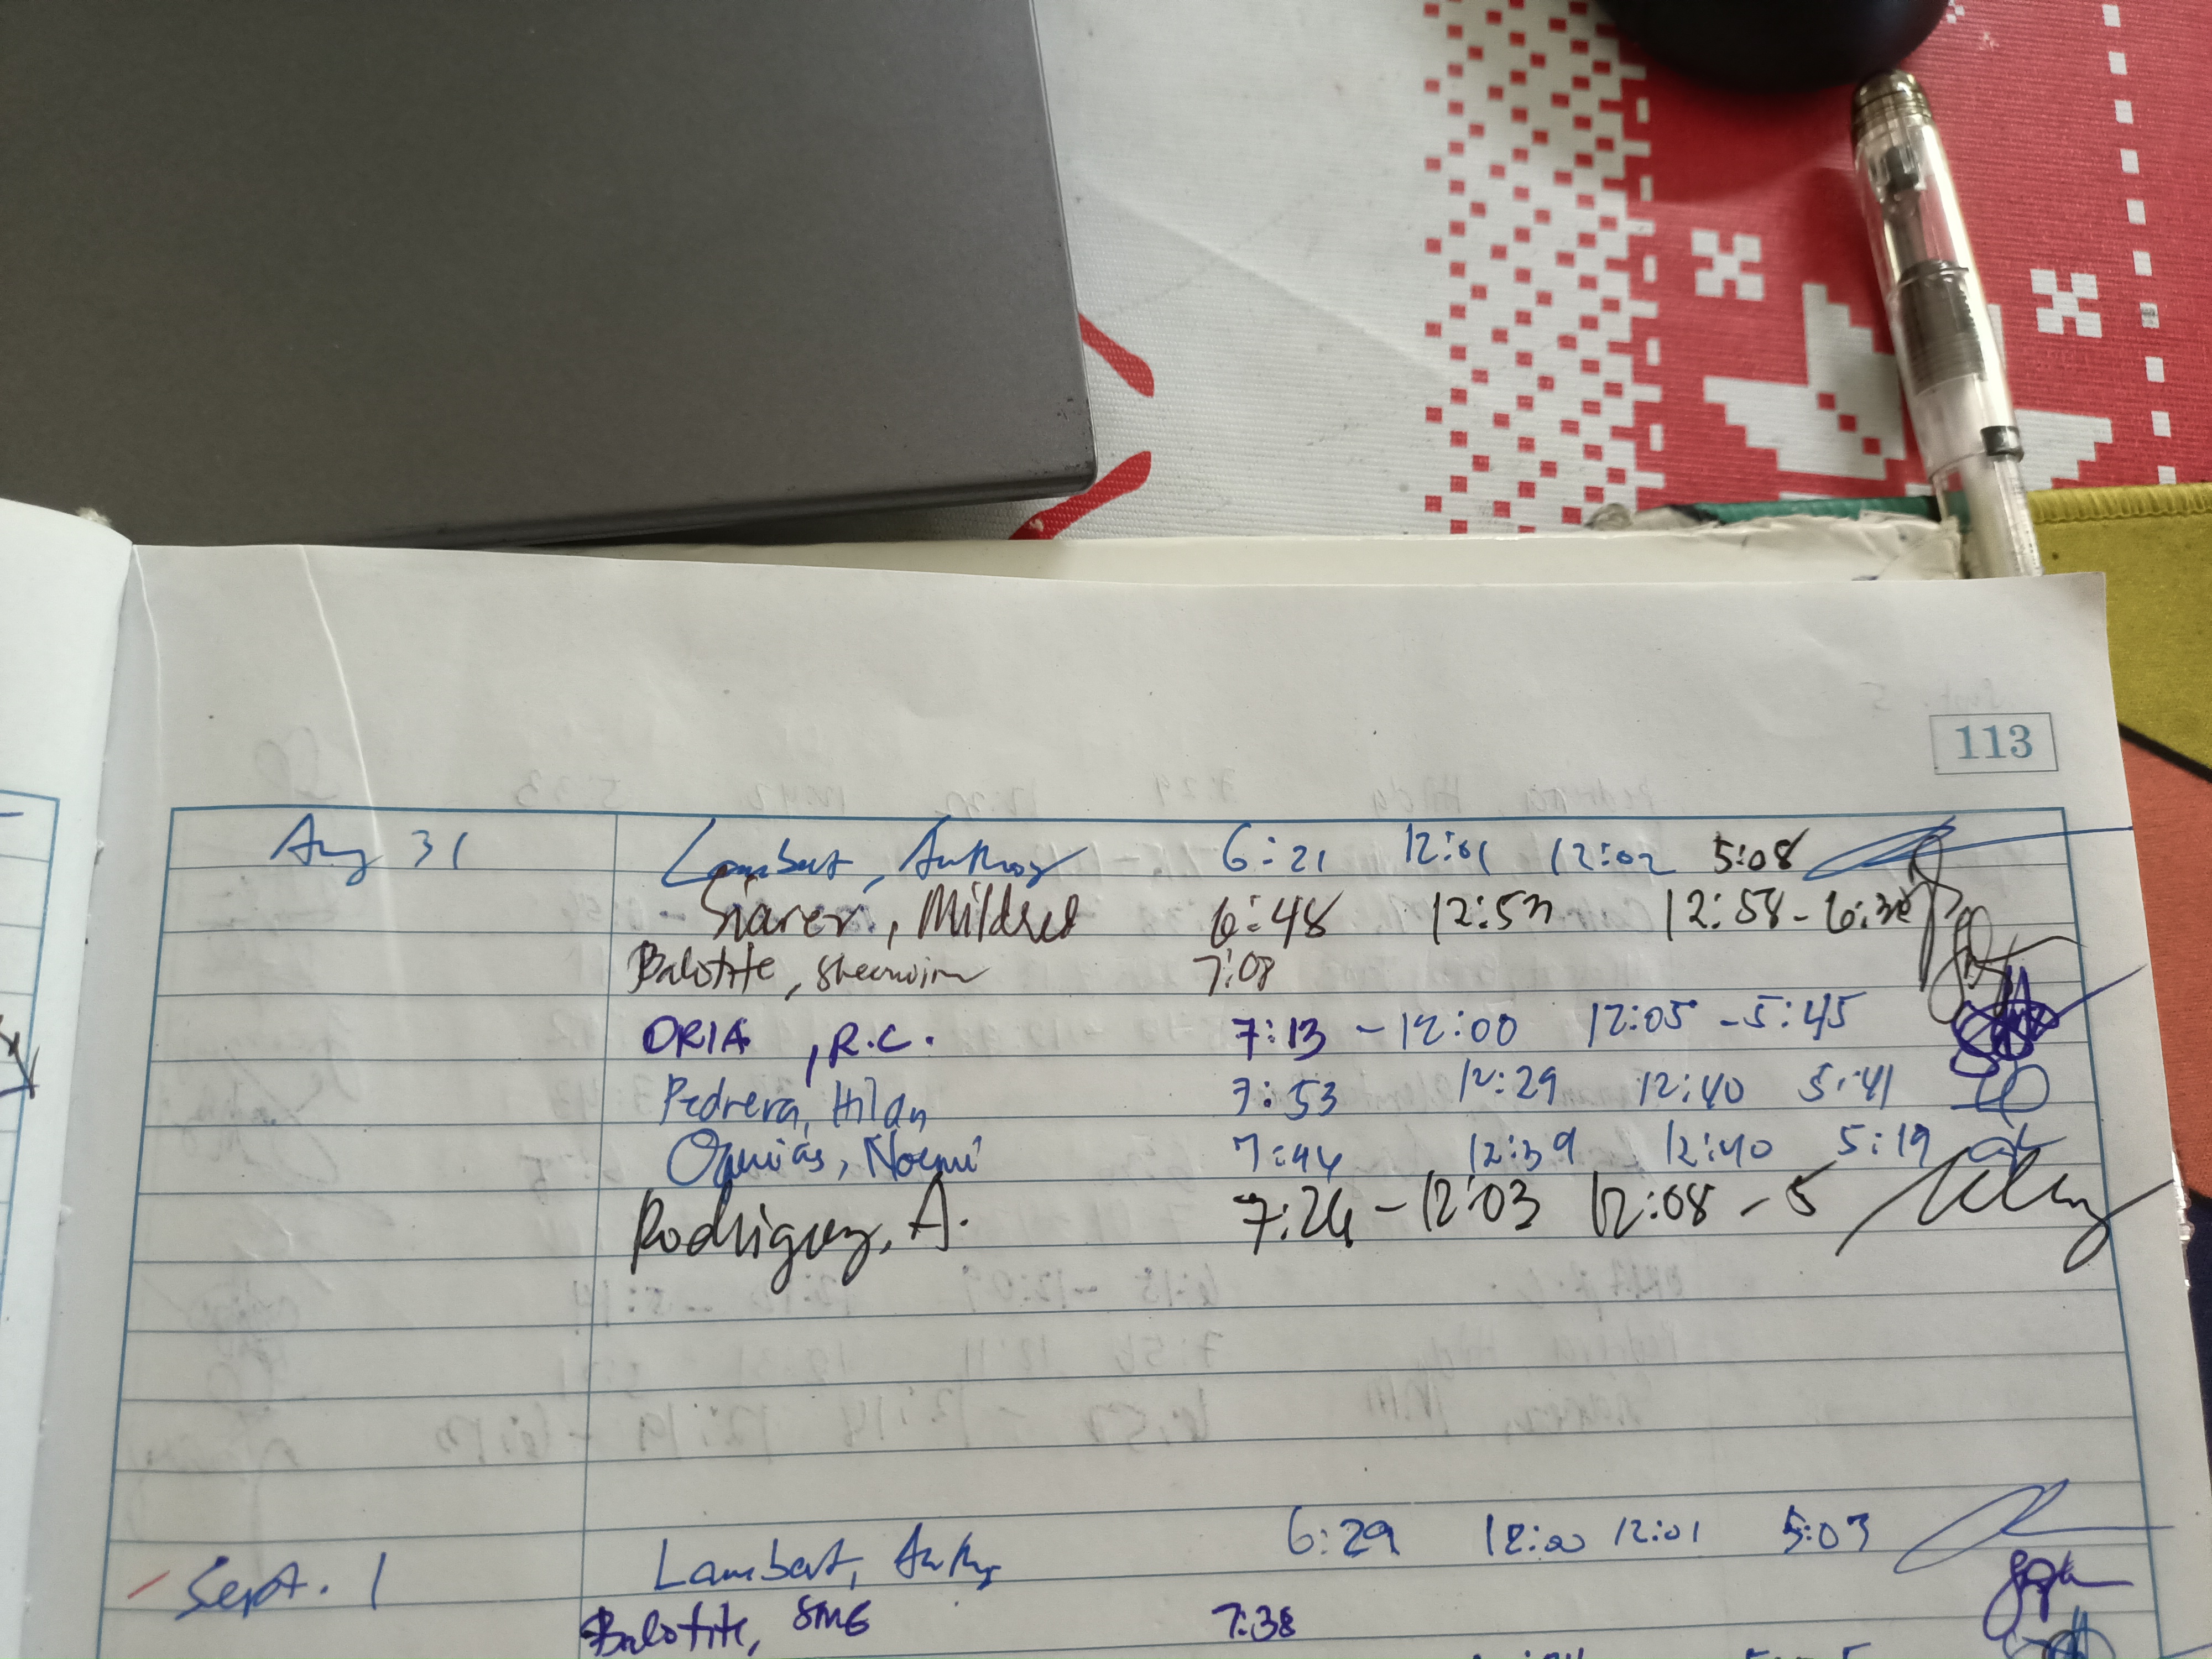 113
Aug 31 Lambert, Anthony 6:21 12:01 12:02 5:08
Siarez, Mildred 6:48 12:53 12:58-6:30
Balotite, Sheenvim 7:08
ORIA, R.C. 7:13 - 12:00 12:05 - 5:45
Pedrera, Hilda 7:53 12:29 12:40 5:41
Noemi 7:44 12:39 12:40 5:19
Rodriguez, A. 7:26 - 12:03 12:08 - 5
Sept. 1 Lambert, 6:29 12:00 12:01 5:03
Balotite, SMG 7:38